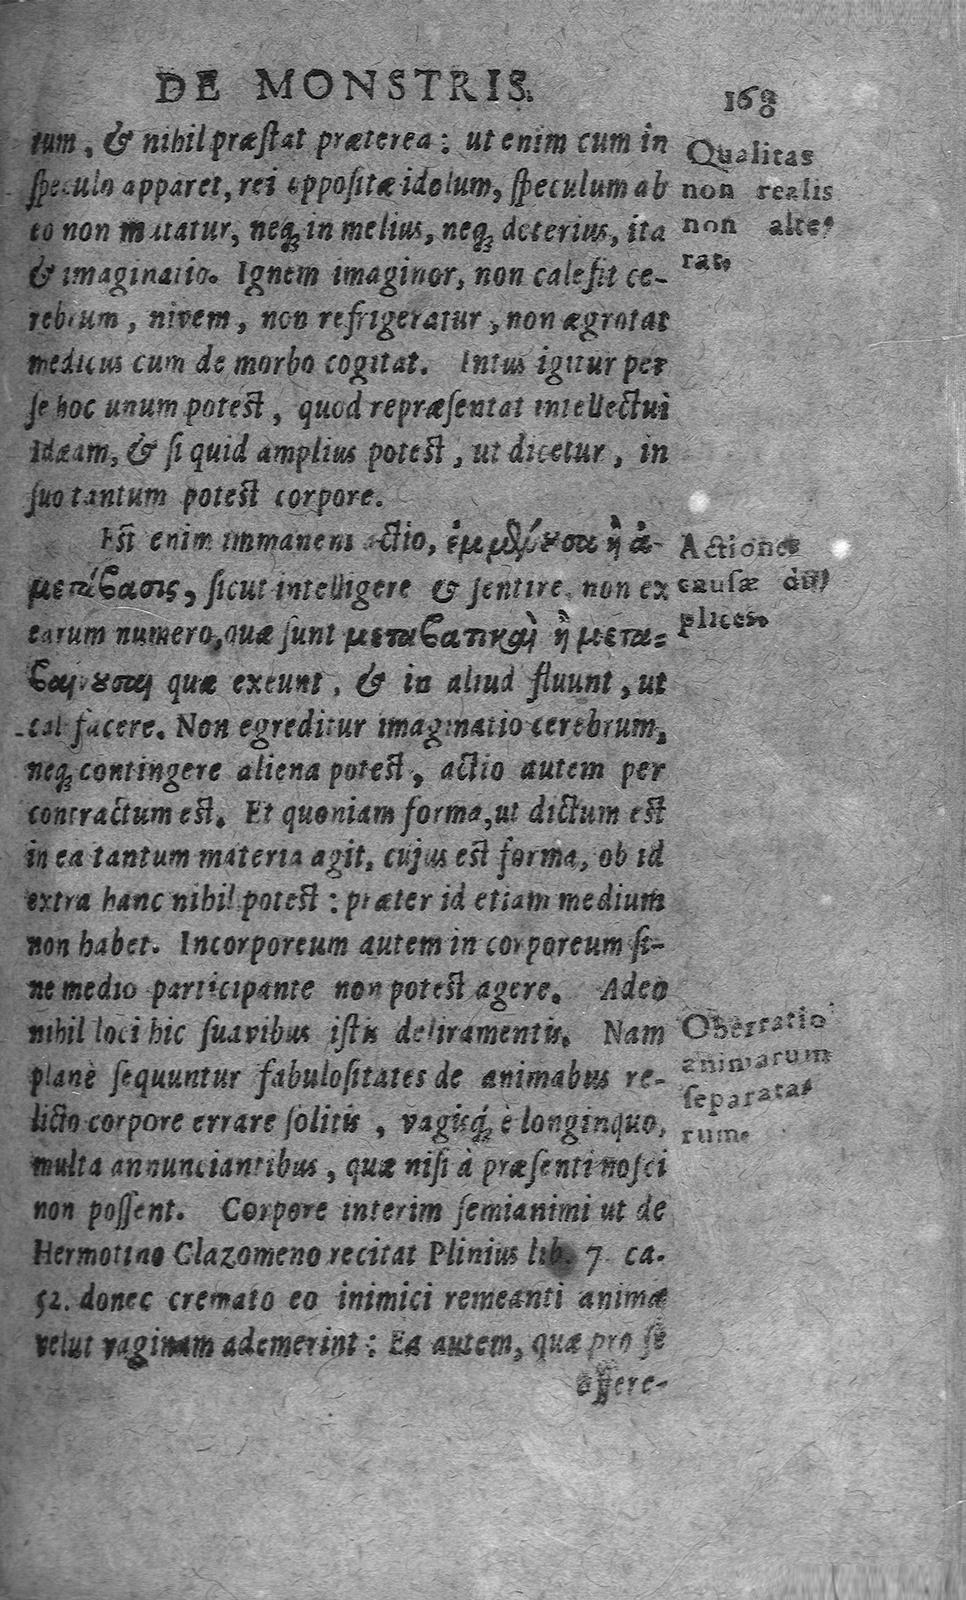 DE MONSTRIS.
168
tum, & nihil præſtat præterea: ut enim cum in
ſpeculo apparet, rei oppoſitæ idolum, ſpeculum ab
eo non mutatur, neq; in melius, neq; deterius, ita
& imaginatio. Ignem imaginor, non calefit ce-
rebrum, nivem, non refrigeratur, non ægrotat
medicus cum de morbo cogitat. Intus igitur per
ſe hoc unum poteſt, quod repræſentat intellectui
Idæam, & ſi quid amplius poteſt, ut dicetur, in
ſuo tantum poteſt corpore.
Eſt enim immanens actio, ἐμμένουσα ἢ ἀ-
μετάβασις, ſicut intelligere & ſentire, non ex
earum numero, quæ ſunt μεταβατικαὶ ἢ μετα-
βαίνουσαι quæ exeunt, & in aliud fluunt, ut
calfacere. Non egreditur imaginatio cerebrum,
neq; contingere aliena poteſt, actio autem per
contractum eſt. Et quoniam forma, ut dictum eſt
in ea tantum materia agit, cujus eſt forma, ob id
extra hanc nihil poteſt: præter id etiam medium
non habet. Incorporeum autem in corporeum ſi-
ne medio participante non poteſt agere. Adeo
nihil loci hic ſuavibus iſtis deliramentis. Nam
planè ſequuntur fabuloſitates de animabus re-
licto corpore errare ſolitis, vagisq́; è longinquo,
multa annunciantibus, quæ niſi à præſenti noſci
non poſſent. Corpore interim ſemianimi ut de
Hermotino Clazomeno recitat Plinius lib. 7 ca.
52. donec cremato eo inimici remeanti animæ
velut vaginam ademerint: Ea autem, quæ pro ſe
offere-
Qualitas
non realis
non alte-
rat.
Actiones
cauſæ du-
plices.
Oberratio
animarum
ſeparata-
rum.